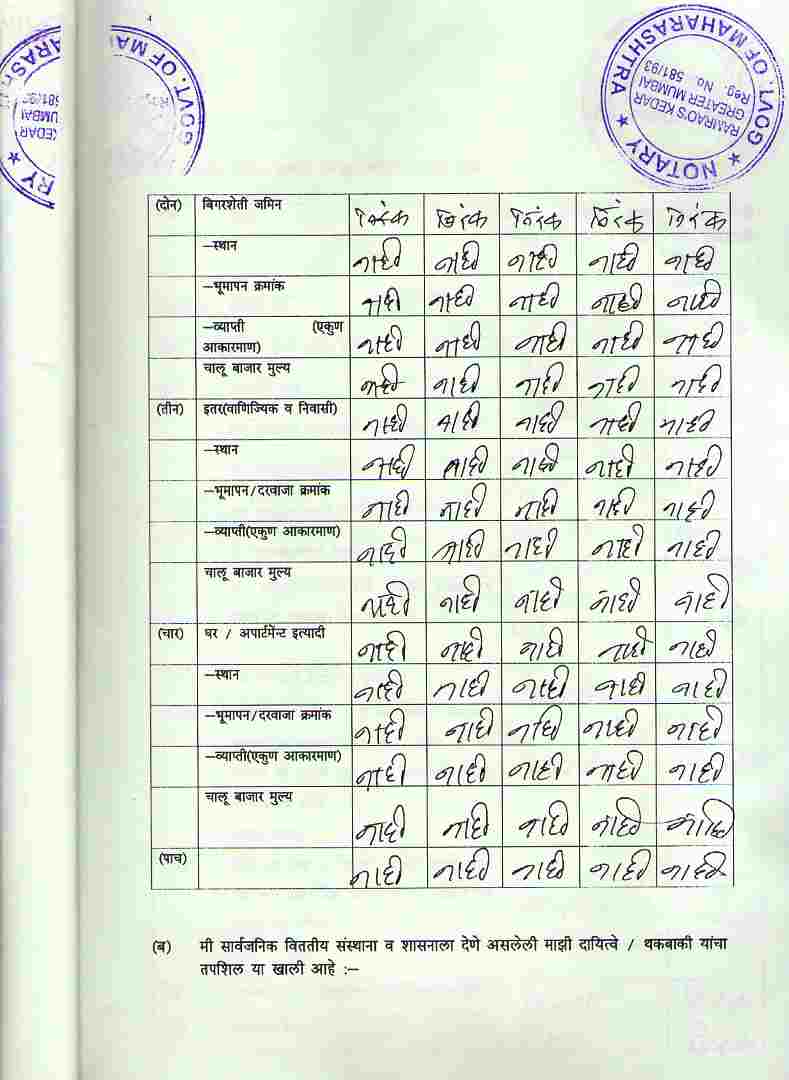 4
NOTARY ★ GOVT. OF MAHARASHTRA ★
RAMRAO'S KEDAR
GREATER MUMBAI
Reg. No. 581/93
GOVT. OF MA
ARASH
581/93
UMBAI
KEDAR
RY ★
(दोन) बिगरशेती जमिन निरंक निरंक निरंक निरंक निरंक
–स्थान नाही नाही नाही नाही नाही
–भूमापन क्रमांक नाही नाही नाही नाही नाही
–व्याप्ती (एकुण
आकारमाण) नाही नाही नाही नाही नाही
चालू बाजार मुल्य नाही नाही नाही नाही नाही
(तीन) इतर(वाणिज्यिक व निवासी) नाही नाही नाही नाही नाही
–स्थान नाही नाही नाही नाही नाही
–भूमापन/दरवाजा क्रमांक नाही नाही नाही नाही नाही
–व्याप्ती(एकुण आकारमाण) नाही नाही नाही नाही नाही
चालू बाजार मुल्य नाही नाही नाही नाही नाही
(चार) घर / अपार्टमेन्ट इत्यादी नाही नाही नाही नाही नाही
–स्थान नाही नाही नाही नाही नाही
–भूमापन/दरवाजा क्रमांक नाही नाही नाही नाही नाही
–व्याप्ती(एकुण आकारमाण) नाही नाही नाही नाही नाही
चालू बाजार मुल्य नाही नाही नाही नाही नाही
(पाच) नाही नाही नाही नाही नाही
(ब) मी सार्वजनिक विततीय संस्थाना व शासनाला देणे असलेली माझी दायित्वे / थकबाकी यांचा
तपशिल या खाली आहे :–